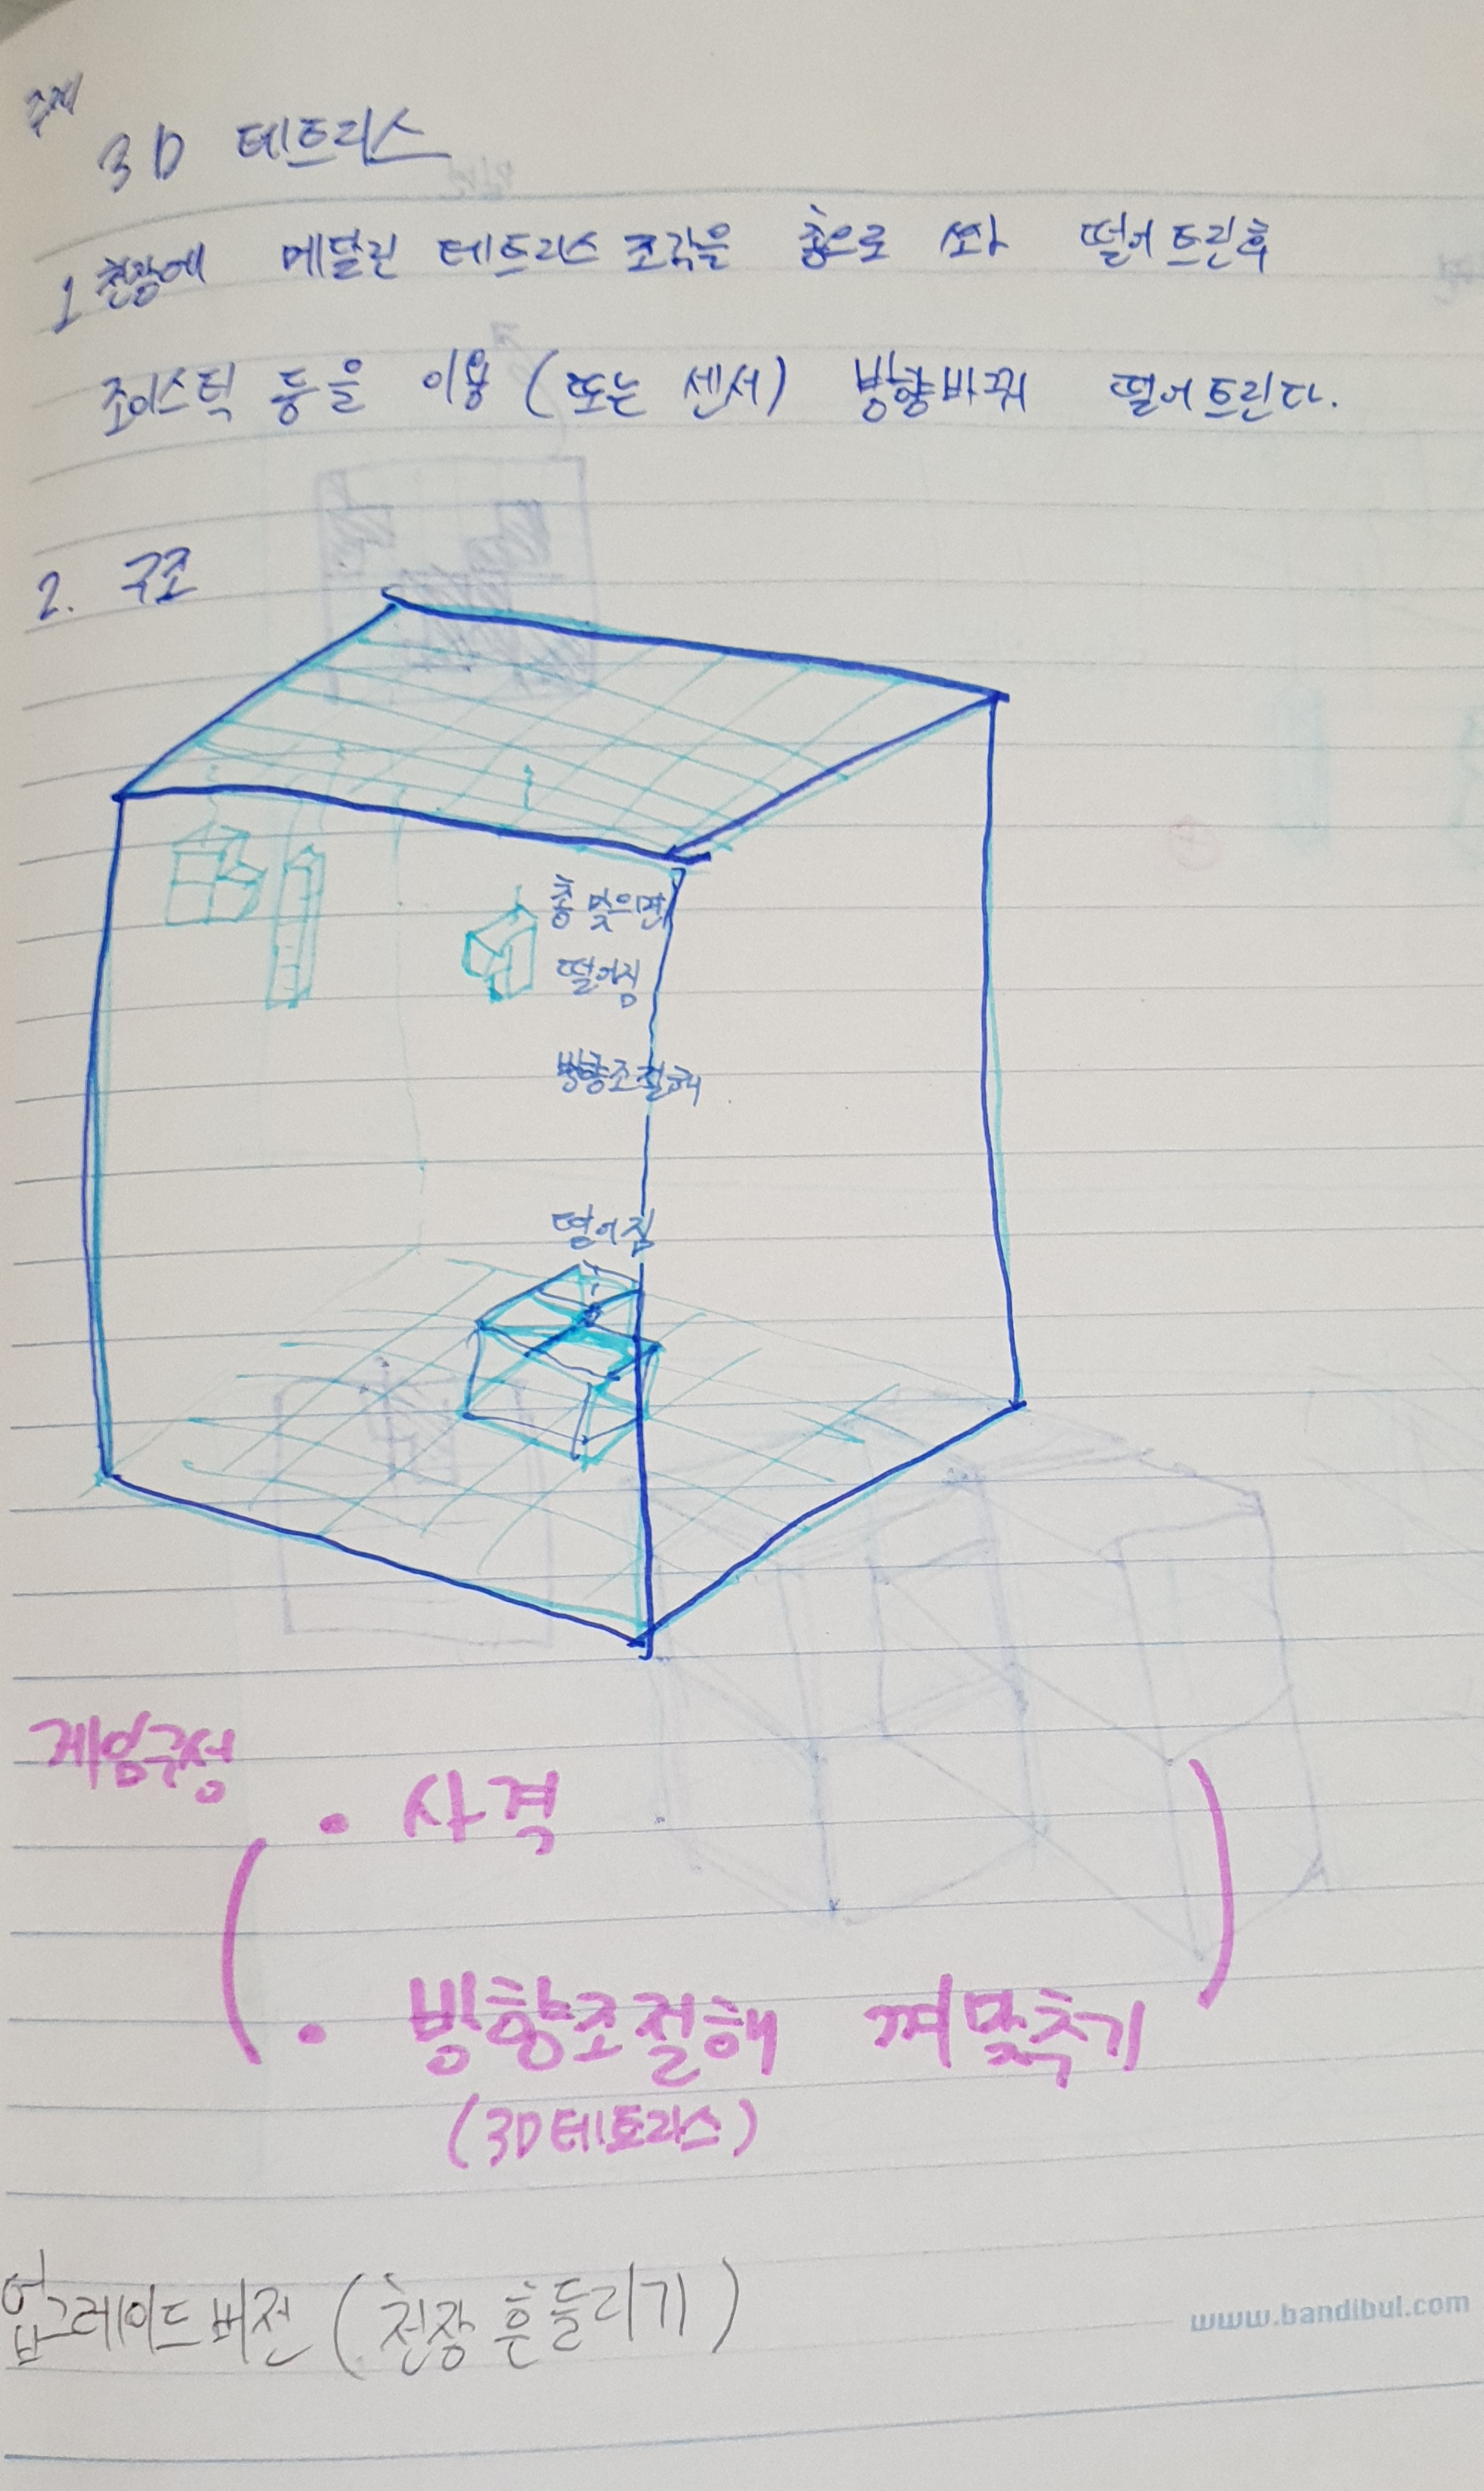 주제
3D 테트리스
1 천장에 메달린 테트리스 조각을 총으로 쏴 떨어트린후
조이스틱 등을 이용 (또는 센서) 방향바꿔 떨어트린다.
2. 구조
총 맞으면
떨어짐
방향조절해
떨어짐
게임구성
· 사격
· 방향조절해 껴맞추기
(3D테트리스)
업그레이드버전 (천장 흔들리기)
www.bandibul.com